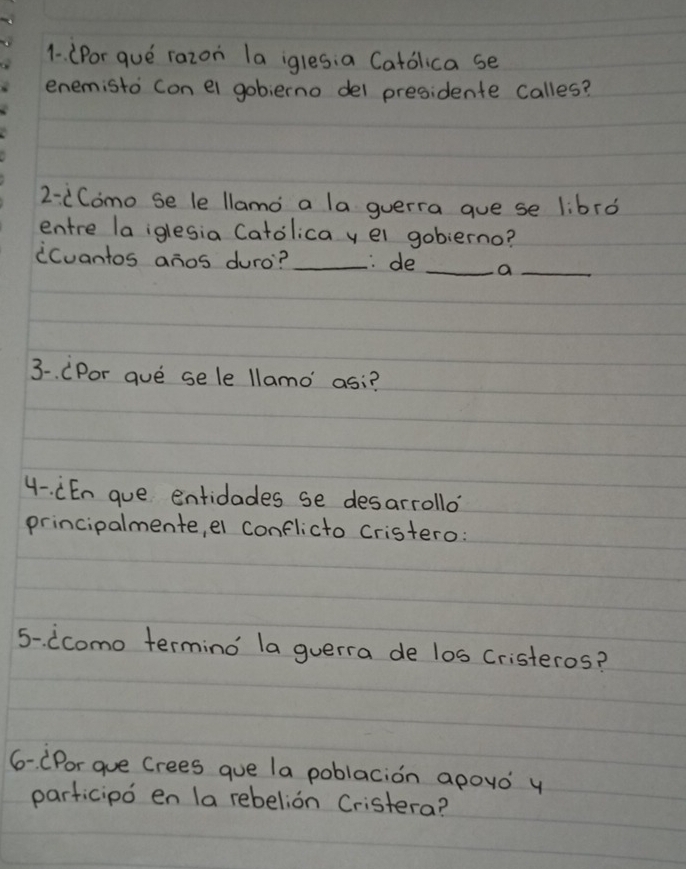 1-.¿Por qué razón la iglesia Católica se
enemistó con el gobierno del presidente calles?
2-¿Cómo se le llamó a la guerra que se libró
entre la iglesia Católica y el gobierno?
¿Cuantos años duró?_____: de _____a_____
3-.¿Por qué se le llamó asi?
4-.¿En que entidades se desarrolló
principalmente, el conflicto cristero:
5-.¿como terminó la guerra de los cristeros?
6-.¿Por que crees que la población apoyó y
participó en la rebelión Cristera?